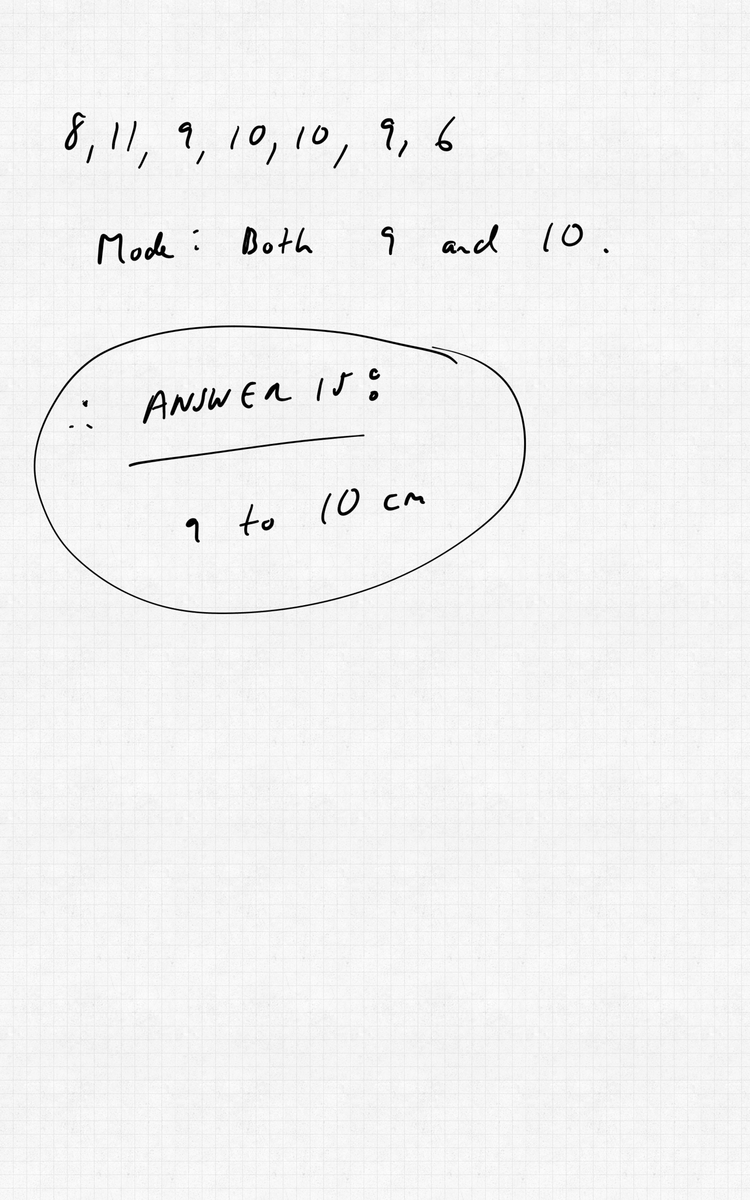 8, 11, 9, 10, 10, 9, 6
Mode: Both 9 and 10.
∴ ANSWER IS:
9 to 10 cm